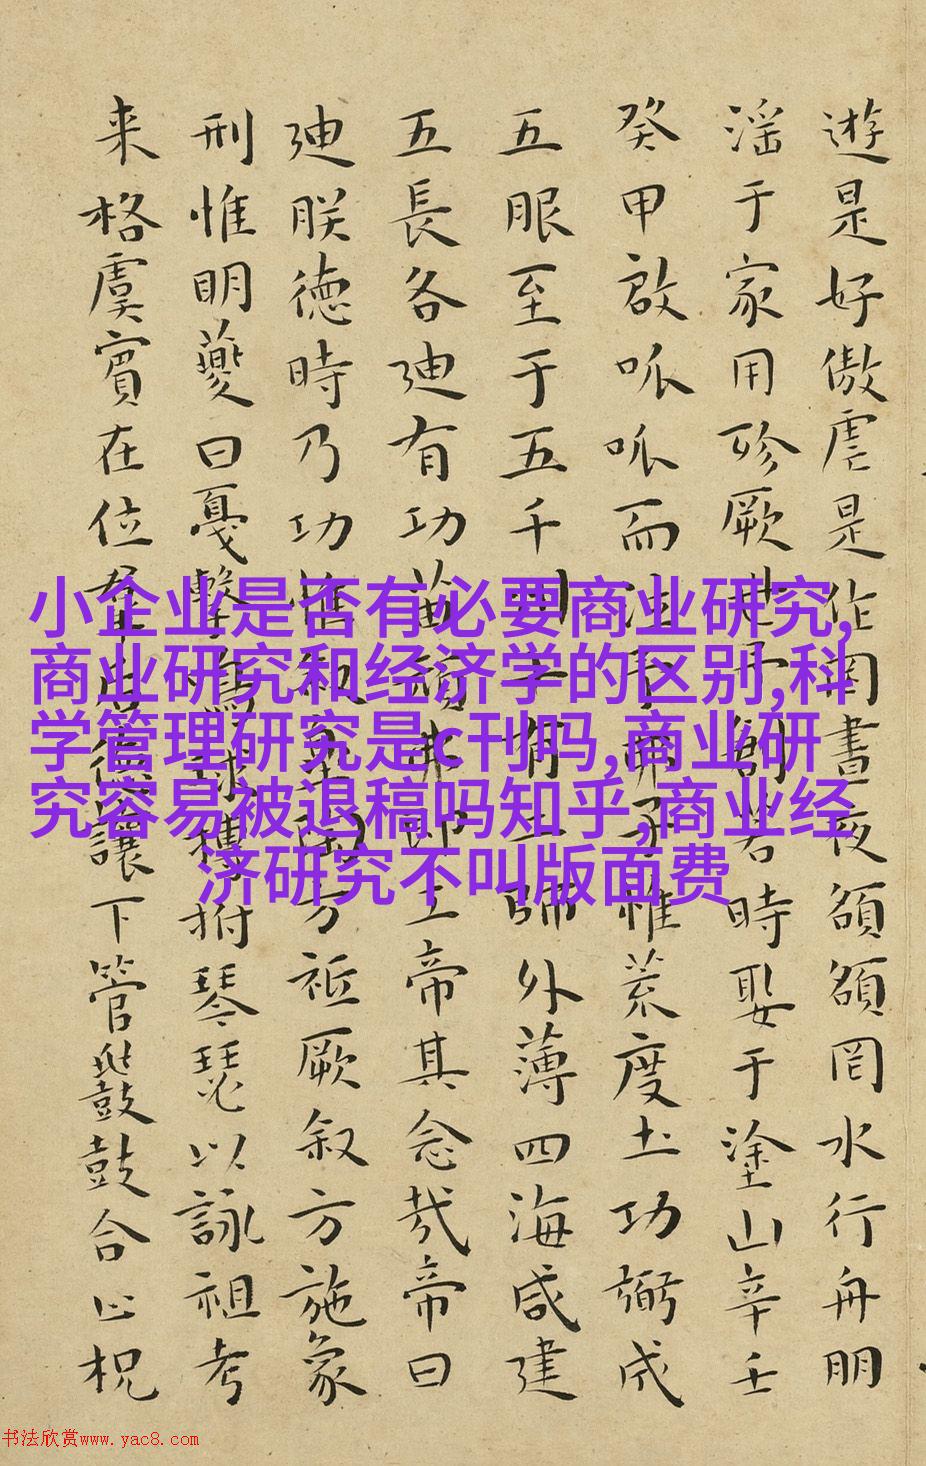 遊是好傲虐是作罔晝夜頟頟罔水行舟朋
淫于家用殄厥世予創若時娶于塗山辛壬
癸甲啟呱呱而泣予弗子惟荒度土功弼成
五服至于五千州十有二師外薄四海咸建
五長各迪有功苗頑弗即工帝其念哉帝曰
迪朕德時乃功惟叙皋陶方祗厥叙方施象
刑惟明夔曰戛擊鳴球搏拊琴瑟以詠祖考
来格虞賓在位羣后德讓下管鼗鼓合止柷
小企业是否有必要商业研究,
商业研究和经济学的区别,科
学管理研究是c刊吗,商业研
究容易被退稿吗知乎,商业经
济研究不叫版面费
书法欣赏www.yac8.com